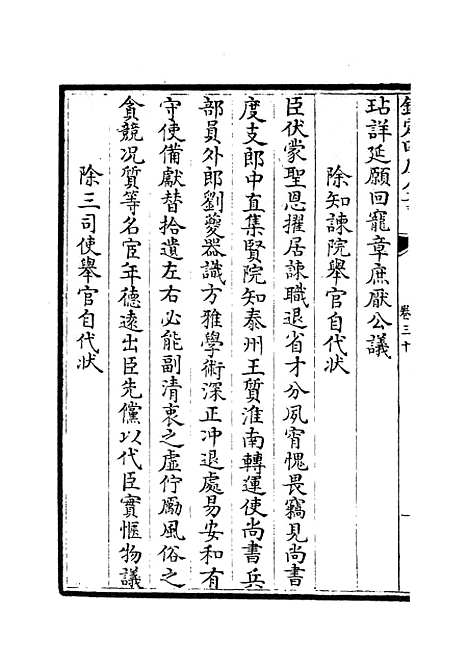 玷詳延願回寵章庶厭公議
除知諫院舉官自代狀
臣伏蒙聖恩擢居諫職退省才分夙宵愧畏竊見尚書
度支郎中直集賢院知泰州王質淮南轉運使尚書兵
部員外郎劉夔器識方雅學術深正冲退處易安和有
守使備獻替拾遺左右必能副清衷之虛佇勵風俗之
貪競况質等名宦年德逺出臣先儻以代臣實愜物議
除三司使舉官自代狀
卷三十